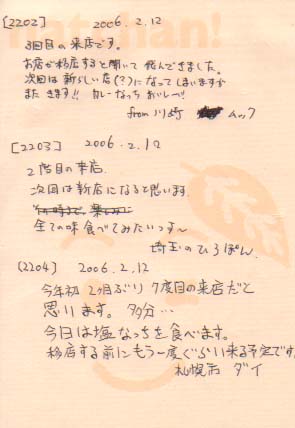 natchan!
[2202] 2006.2.12
3回目の来店です。
お店が移店すると聞いて飛んできました。
次回は新らしい店(?)になってしまいますが
また きます!! カレーなっち おいしーッ!
from 川崎 ムック
[2203] 2006.2.12
2度目の来店.
次回は新店になると思います.
全ての味食べてみたいっす〜
埼玉のひろぽん.
(2204) 2006.2.12
今年初 2ヶ月ぶり 7度目の来店だと
思います。 多分…
今日は塩なっちを食べます。
移店する前にもう一度ぐらい来る予定です。
札幌市 ダイ